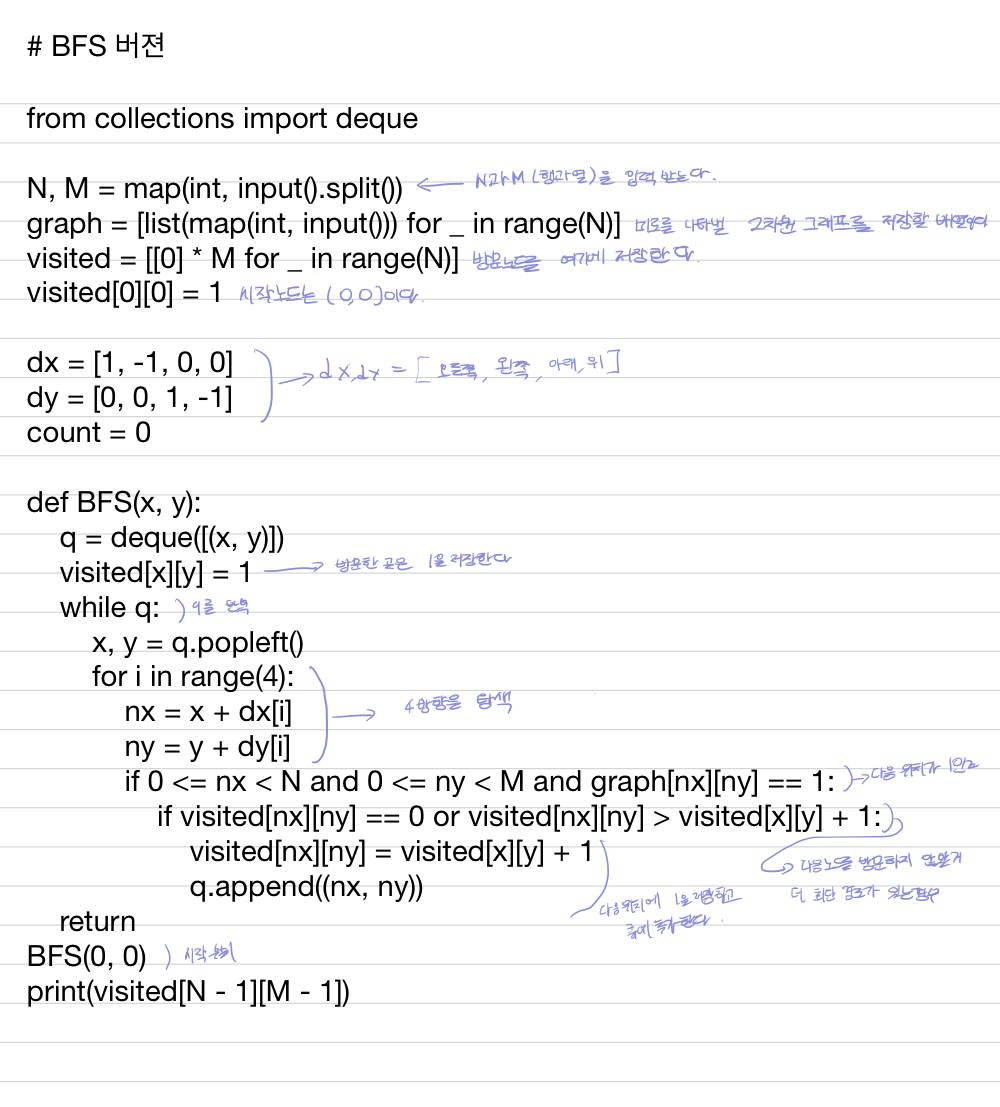 # BFS 버젼
from collections import deque
N, M = map(int, input().split()) N과 M (행과 열)을 입력 받는다.
graph = [list(map(int, input())) for _ in range(N)] 미로를 나타낼 2차원 그래프를 저장할
visited = [[0] * M for _ in range(N)] 방문노드를 여기에 저장한다.
visited[0][0] = 1 시작노드는 (0,0)이다.
dx = [1, -1, 0, 0]
dx, dy = [오른쪽, 왼쪽, 아래, 위]
dy = [0, 0, 1, -1]
count = 0
def BFS(x, y):
q = deque([(x, y)])
visited[x][y] = 1 방문한 곳은 1을 저장한다
while q: q를
x, y = q.popleft()
for i in range(4):
nx = x + dx[i] 4방향을 탐색
ny = y + dy[i]
if 0 <= nx < N and 0 <= ny < M and graph[nx][ny] == 1: 다음 위치가
if visited[nx][ny] == 0 or visited[nx][ny] > visited[x][y] + 1:
visited[nx][ny] = visited[x][y] + 1
다음노드를 방문하지 않았거
q.append((nx, ny))
더 최단 경로가 있는경우
다음위치에 1을 저장하고
return
큐에 추가한다.
BFS(0, 0) 시작
print(visited[N - 1][M - 1])